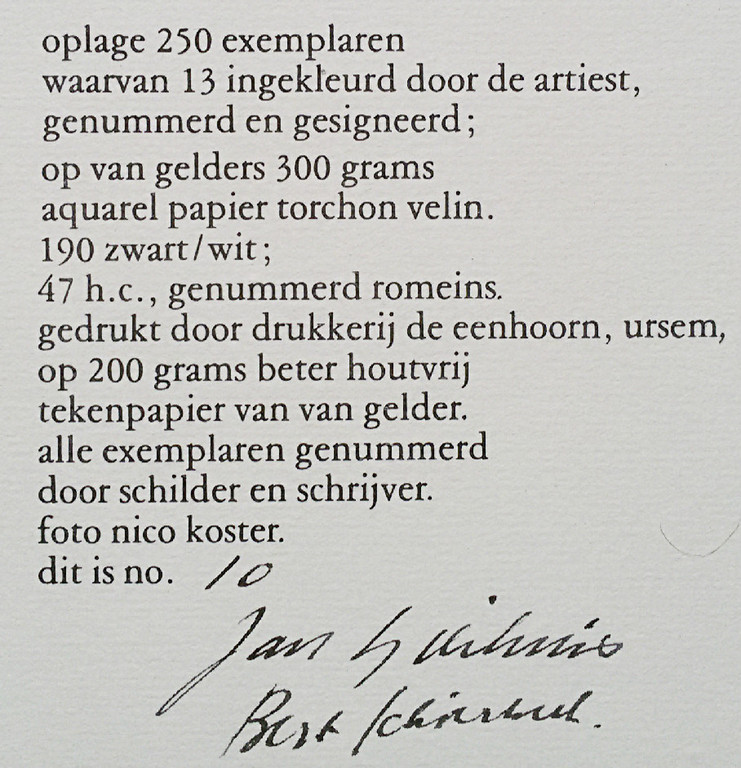 oplage 250 exemplaren
waarvan 13 ingekleurd door de artiest,
genummerd en gesigneerd;
op van gelders 300 grams
aquarel papier torchon velin.
190 zwart/wit;
47 h.c., genummerd romeins.
gedrukt door drukkerij de eenhoorn, ursem,
op 200 grams beter houtvrij
tekenpapier van van gelder.
alle exemplaren genummerd
door schilder en schrijver.
foto nico koster.
dit is no. 10
Jan
Bert